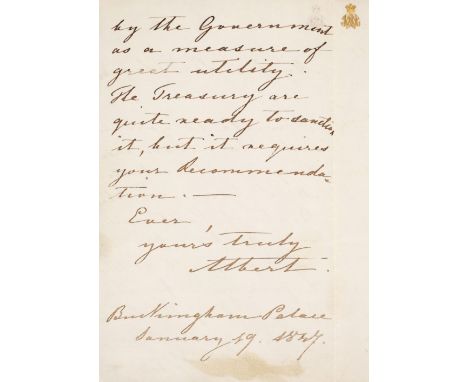 by the Government
as a measure of
great utility.
The Treasury are
quite ready to sanction
it, but it requires
your Recommenda-
tion. —
Ever
yours truly
Albert
Buckingham Palace
January 19. 1847.